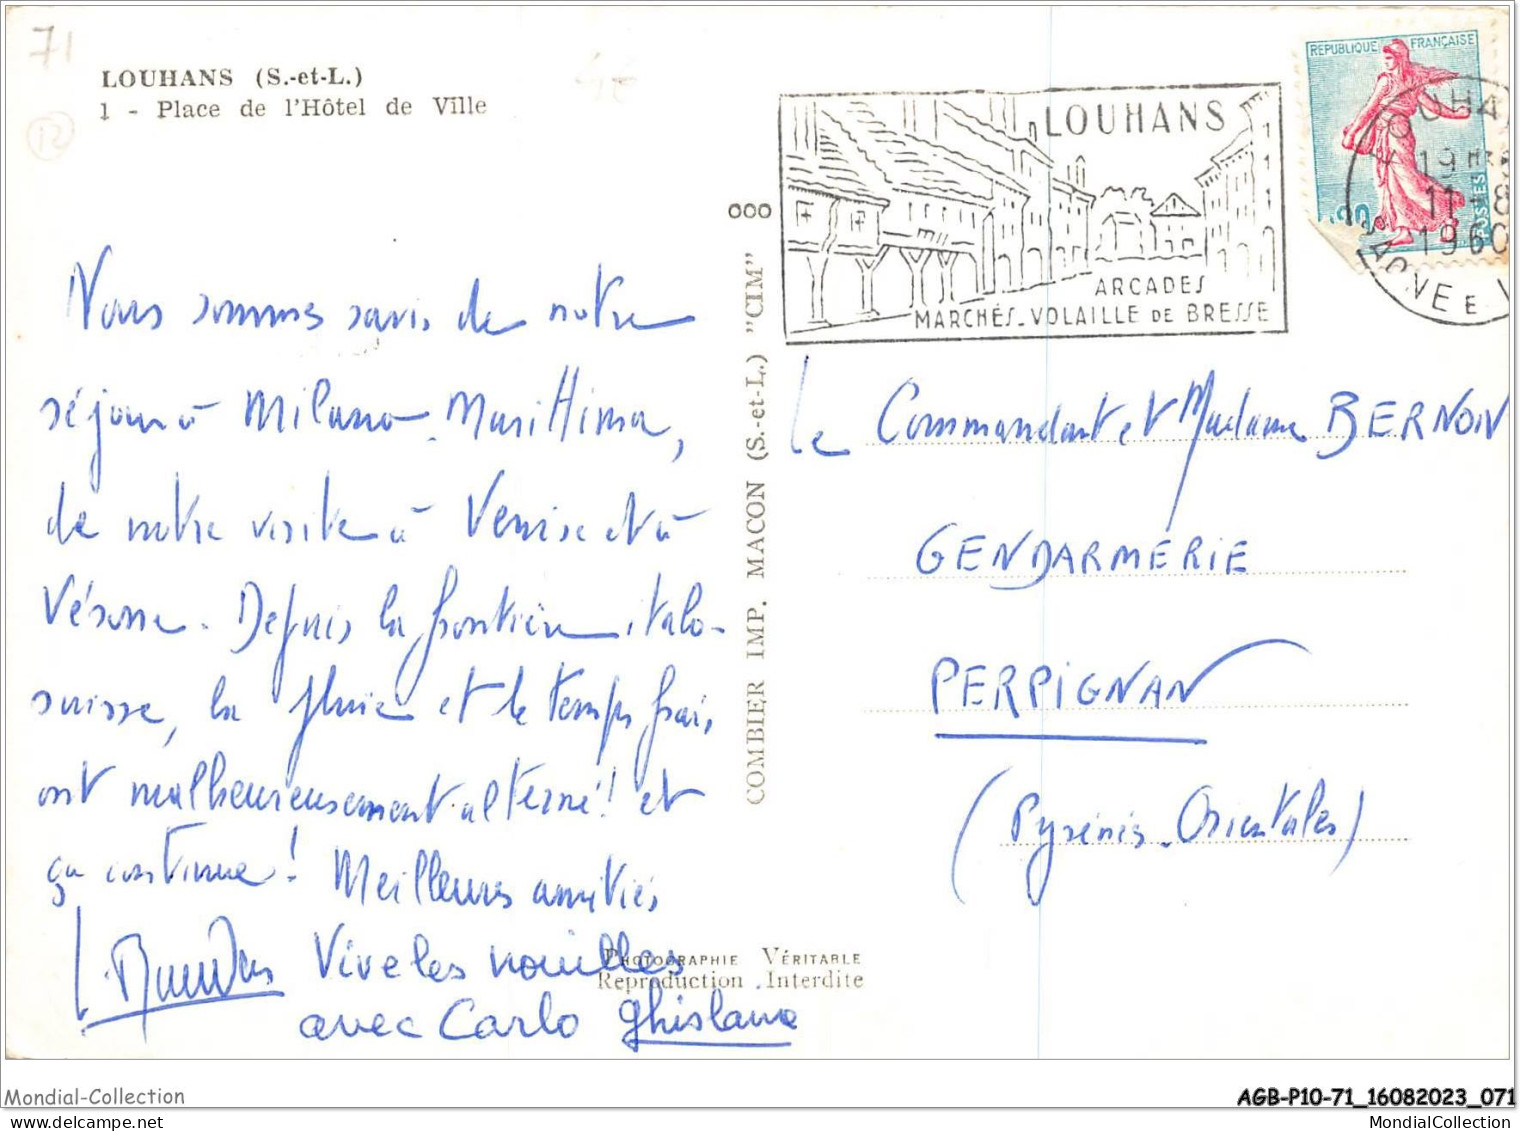 71
LOUHANS (S.-et-L.)
1 - Place de l'Hôtel de Ville
4€
12
LOUHANS
ARCADES
MARCHÉS - VOLAILLE DE BRESSE
REPUBLIQUE FRANÇAISE
POSTES
19H
11-8
1960
Nous sommes ravis de notre
séjour à Milano-Marittima,
de notre visite à Venise et à
Vérone. Depuis la frontière italo-
suisse, la pluie et le temps frais
ont malheureusement alterné! et
ça continue! Meilleures amitiés
Vive les nouilles
avec Carlo Ghislaine
COMBIER IMP. MACON (S.-et-L.) "CIM"
Le Commandant et Madame BERNON
GENDARMERIE
PERPIGNAN
(Pyrénées-Orientales)
PHOTOGRAPHIE VÉRITABLE
Reproduction Interdite
Mondial-Collection
AGB-P10-71_16082023_071
MondialCollection